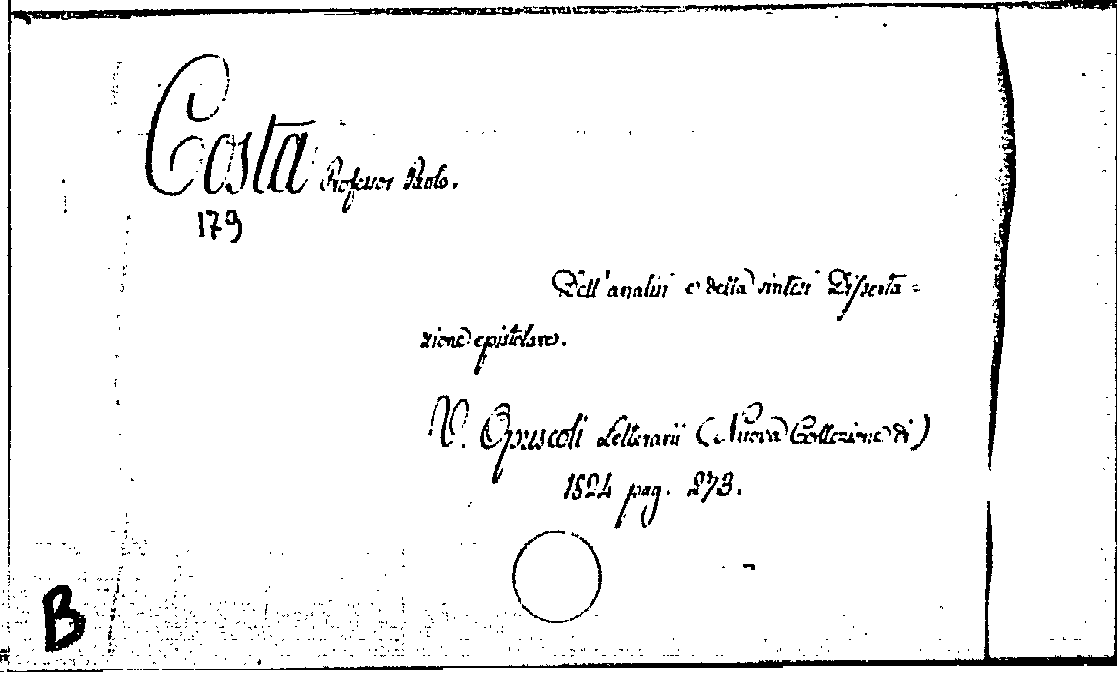 Costa Professor Paolo.
179
Dell'analisi e della sintesi Disserta=
zione epistolare.
V. Opuscoli Letterarii (Nuova Collezione di)
1824 pag. 273.
B